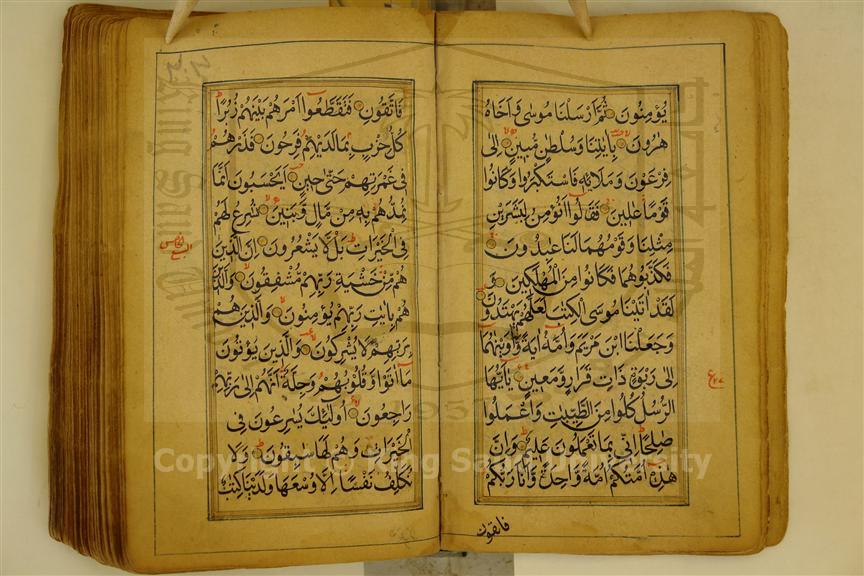 يُؤْمِنُونَ ۝ ثُمَّ اَرْسَلْنَا مُوسٰى وَاَخَاهُ
هٰرُونَ ۝ بِاٰيٰتِنَا وَسُلْطٰنٍ مُّبِيْنٍ ۝ اِلٰى
فِرْعَوْنَ وَمَلَا۟ئِهٖ فَاسْتَكْبَرُوا وَكَانُوا
قَوْمًا عَالِينَ ۝ فَقَالُوا اَنُؤْمِنُ لِبَشَرَيْنِ
مِثْلِنَا وَقَوْمُهُمَا لَنَا عٰبِدُونَ ۝
فَكَذَّبُوهُمَا فَكَانُوا مِنَ الْمُهْلَكِينَ ۝ وَ
لَقَدْ اٰتَيْنَا مُوسَى الْكِتٰبَ لَعَلَّهُمْ يَهْتَدُونَ ۝
وَجَعَلْنَا ابْنَ مَرْيَمَ وَاُمَّهٗ اٰيَةً وَّاٰوَيْنٰهُمَا
اِلٰى رَبْوَةٍ ذَاتِ قَرَارٍ وَّمَعِينٍ ۝ يٰاَيُّهَا
الرُّسُلُ كُلُوا مِنَ الطَّيِّبٰتِ وَاعْمَلُوا
صٰلِحًا اِنِّى بِمَا تَعْمَلُونَ عَلِيمٌ ۝ وَاِنَّ
هٰذِهٖ اُمَّتُكُمْ اُمَّةً وَّاحِدَةً وَّاَنَا رَبُّكُمْ
فاتقون
فَاتَّقُونِ ۝ فَتَقَطَّعُوا اَمْرَهُمْ بَيْنَهُمْ زُبُرًا
كُلُّ حِزْبٍ بِمَا لَدَيْهِمْ فَرِحُونَ ۝ فَذَرْهُمْ
فِى غَمْرَتِهِمْ حَتّٰى حِينٍ ۝ اَيَحْسَبُونَ اَنَّمَا
نُمِدُّهُمْ بِهٖ مِنْ مَالٍ وَّبَنِينَ ۝ نُسَارِعُ لَهُمْ
فِى الْخَيْرَاتِ بَلْ لَّا يَشْعُرُونَ ۝ اِنَّ الَّذِينَ
هُمْ مِّنْ خَشْيَةِ رَبِّهِمْ مُّشْفِقُونَ ۝ وَالَّذِينَ
هُمْ بِاٰيٰتِ رَبِّهِمْ يُؤْمِنُونَ ۝ وَالَّذِينَ هُمْ
بِرَبِّهِمْ لَا يُشْرِكُونَ ۝ وَالَّذِينَ يُؤْتُونَ
مَا اٰتَوْا وَّقُلُوبُهُمْ وَجِلَةٌ اَنَّهُمْ اِلٰى رَبِّهِمْ
رَاجِعُونَ ۝ اُولٰئِكَ يُسَارِعُونَ فِى
الْخَيْرَاتِ وَهُمْ لَهَا سٰبِقُونَ ۝ وَلَا
نُكَلِّفُ نَفْسًا اِلَّا وُسْعَهَا وَلَدَيْنَا كِتٰبٌ
Copyright © King Saud University